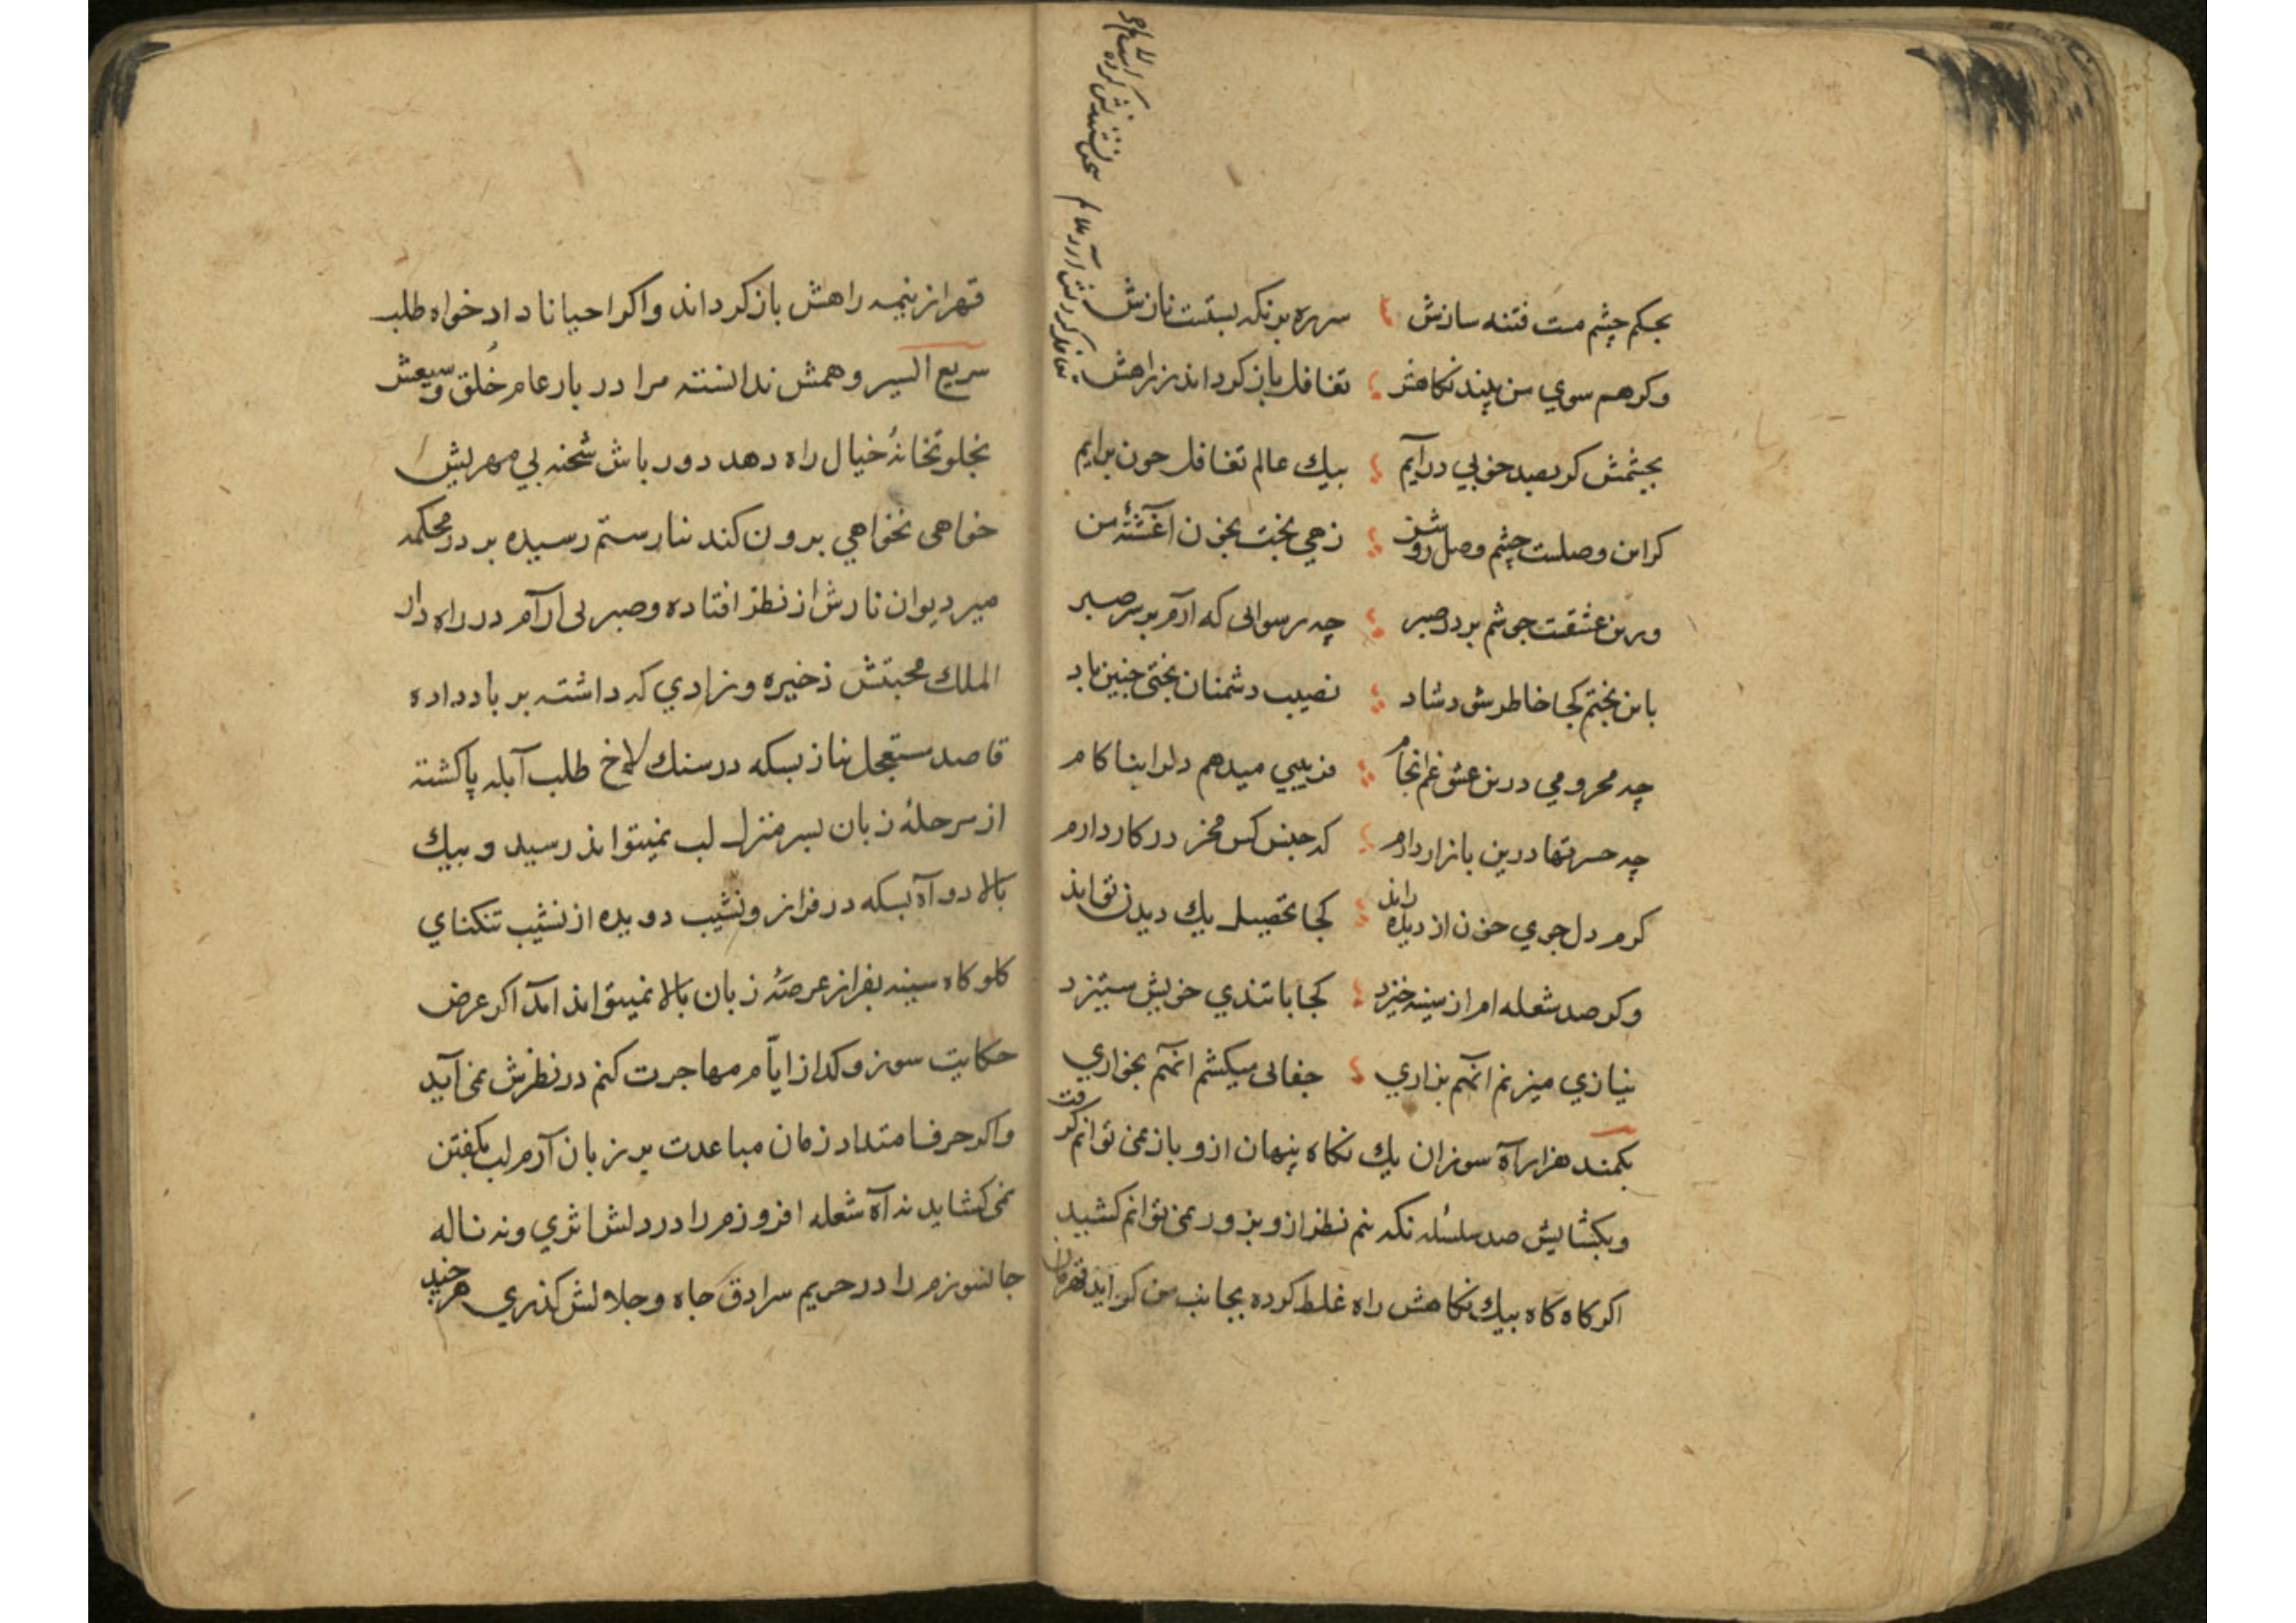 بحکم چشم مست فتنه سازش سر ره بر نکه بستست نازش
وکر هم سوي من بیند نکاهش تغافل باز کرداند ز راهش
بچشمش کر بصد خوبي درآیم بیك عالم تغافل چون برایم
کر این وصلست چشم وصل روشن زهي بخت بخون آغشتهٔ من
ورین عشقست جوشم بر در صبر چه رسوایی که ارم بر سر صبر
باین بختم کجا خاطر شود شاد نصیب دشمنان بختی چنین باد
چه محرومي درین عشق غم انجام فریبي میدهم دلرا بناکام
چه حسرتها درین بازار دارم که جنس کس مخر در کار دارم
کرم دل جوي خون از دیده راند کجا تحصیل یك دیدن تواند
وکر صد شعله ام از سینه خیزد کجا با تندي خویش ستیزد
نیازي میزنم انهم بزاري جفایی میکشم انهم بخواري
بکمند هزار آه سوزان یك نکاه پنهان ازو باز نمی توانم کرفت
وبکشایش صد سلسله نکه نیم نظر ازو بزور نمی توانم کشید
اکر کاه کاه بیك نکاهش راه غلط کرده بجانب من کراید قهرمان
قهر از نیمه راهش باز کرداند واکر احیانا داد خواه طلب
سریع السیر وهمش ندانسته مرا در بار عام خُلق وسیعش
بخلوتخانهٔ خیال راه دهد دور باش شحنه بي مهریش
خواهی نخواهي برون کند نارستم رسیده بر در محکمه
میر دیوان نازش از نظر افتاده وصبر بی آرام در راه دار
الملك محبتش ذخیره وزادي که داشته بر باد داده
قاصد مستعجل نیاز بسکه در سنك لاخ طلب آبله پا کشته
از مرحلهٔ زبان بسر منزل لب نمیتواند رسید و بیك
بالا دو آه بسکه در فراز ونشیب دویده از نشیب تنکناي
کلوکاه سینه بفراز عرصهٔ زبان بالا نمیتواند امد اکر عرض
حکایت سوز وکداز ایّام مهاجرت کنم در نظرش نمی آید
واکر حرف امتداد زمان مباعدت بر زبان آرم لب بکفتن
نمی کشاید نه آه شعله افروزم را در دلش اثري ونه ناله
جانسوزم را در حریم سرادق جاه وجلالش کذري هر چند